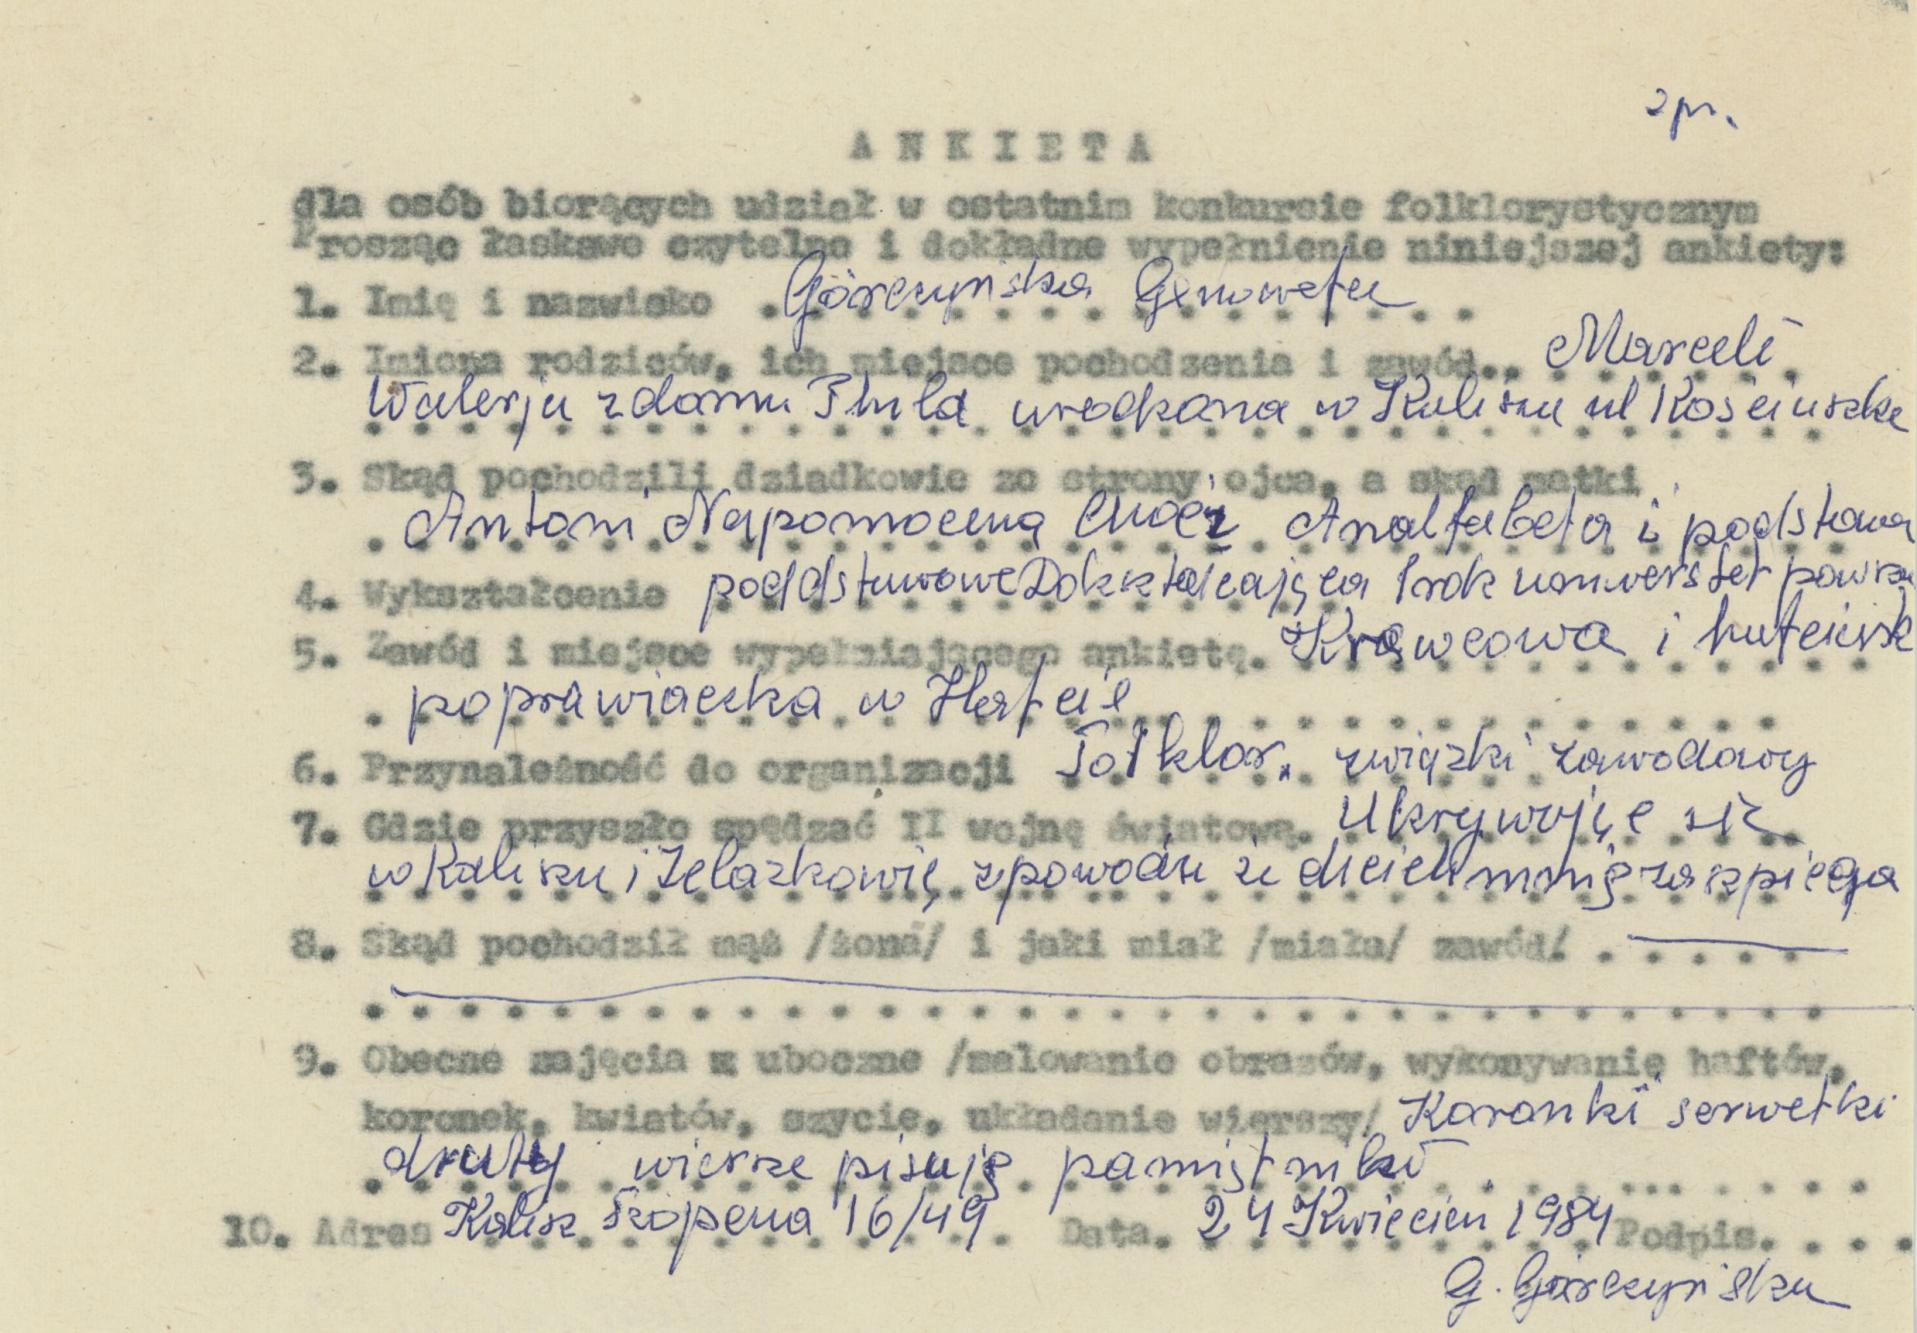 2 pr.
ANKIETA
dla osób biorących udział w ostatnim konkursie folklorystycznym
Prosząc łaskawe czytelne i dokładne wypełnienie niniejszej ankiety:
1. Imię i nazwisko Górczyńska Genowefa
2. Imiona rodziców, ich miejsce pochodzenia i zawód.. Marceli
Walerja z domu urodzona w Kaliszu ul Kościuszki
3. Skąd pochodzili dziadkowie ze strony ojca, a skąd matki
Antoni Analfabeta i podstawa
4. Wykształcenie poddstawowe Dokkztałcająca 1 rok
5. Zawód i miejsce wypełniającego ankietę. Krawcowa i
poprawiaczka w Hafcie
6. Przynależność do organizacji Folklor. związki zawodowy
7. Gdzie przyszło spędzać II wojnę światową. Ukrywając się
w Kaliszu i Żelazkowię z powodu że mnię za szpiega
8. Skąd pochodził mąż /żona/ i jaki miał /miała/ zawód/ . . . . .
9. Obecne zajęcia z uboczne /malowanie obrazów, wykonywanie haftów,
koronek, kwiatów, szycie, układanie wierszy/ Koronki serwetki
druty wiersze pisuję pamiętniki
10. Adres Kalisz Szopena 16/49 Data. 24 Kwiecień 1984 Podpis. . . .
G. Górczyńska